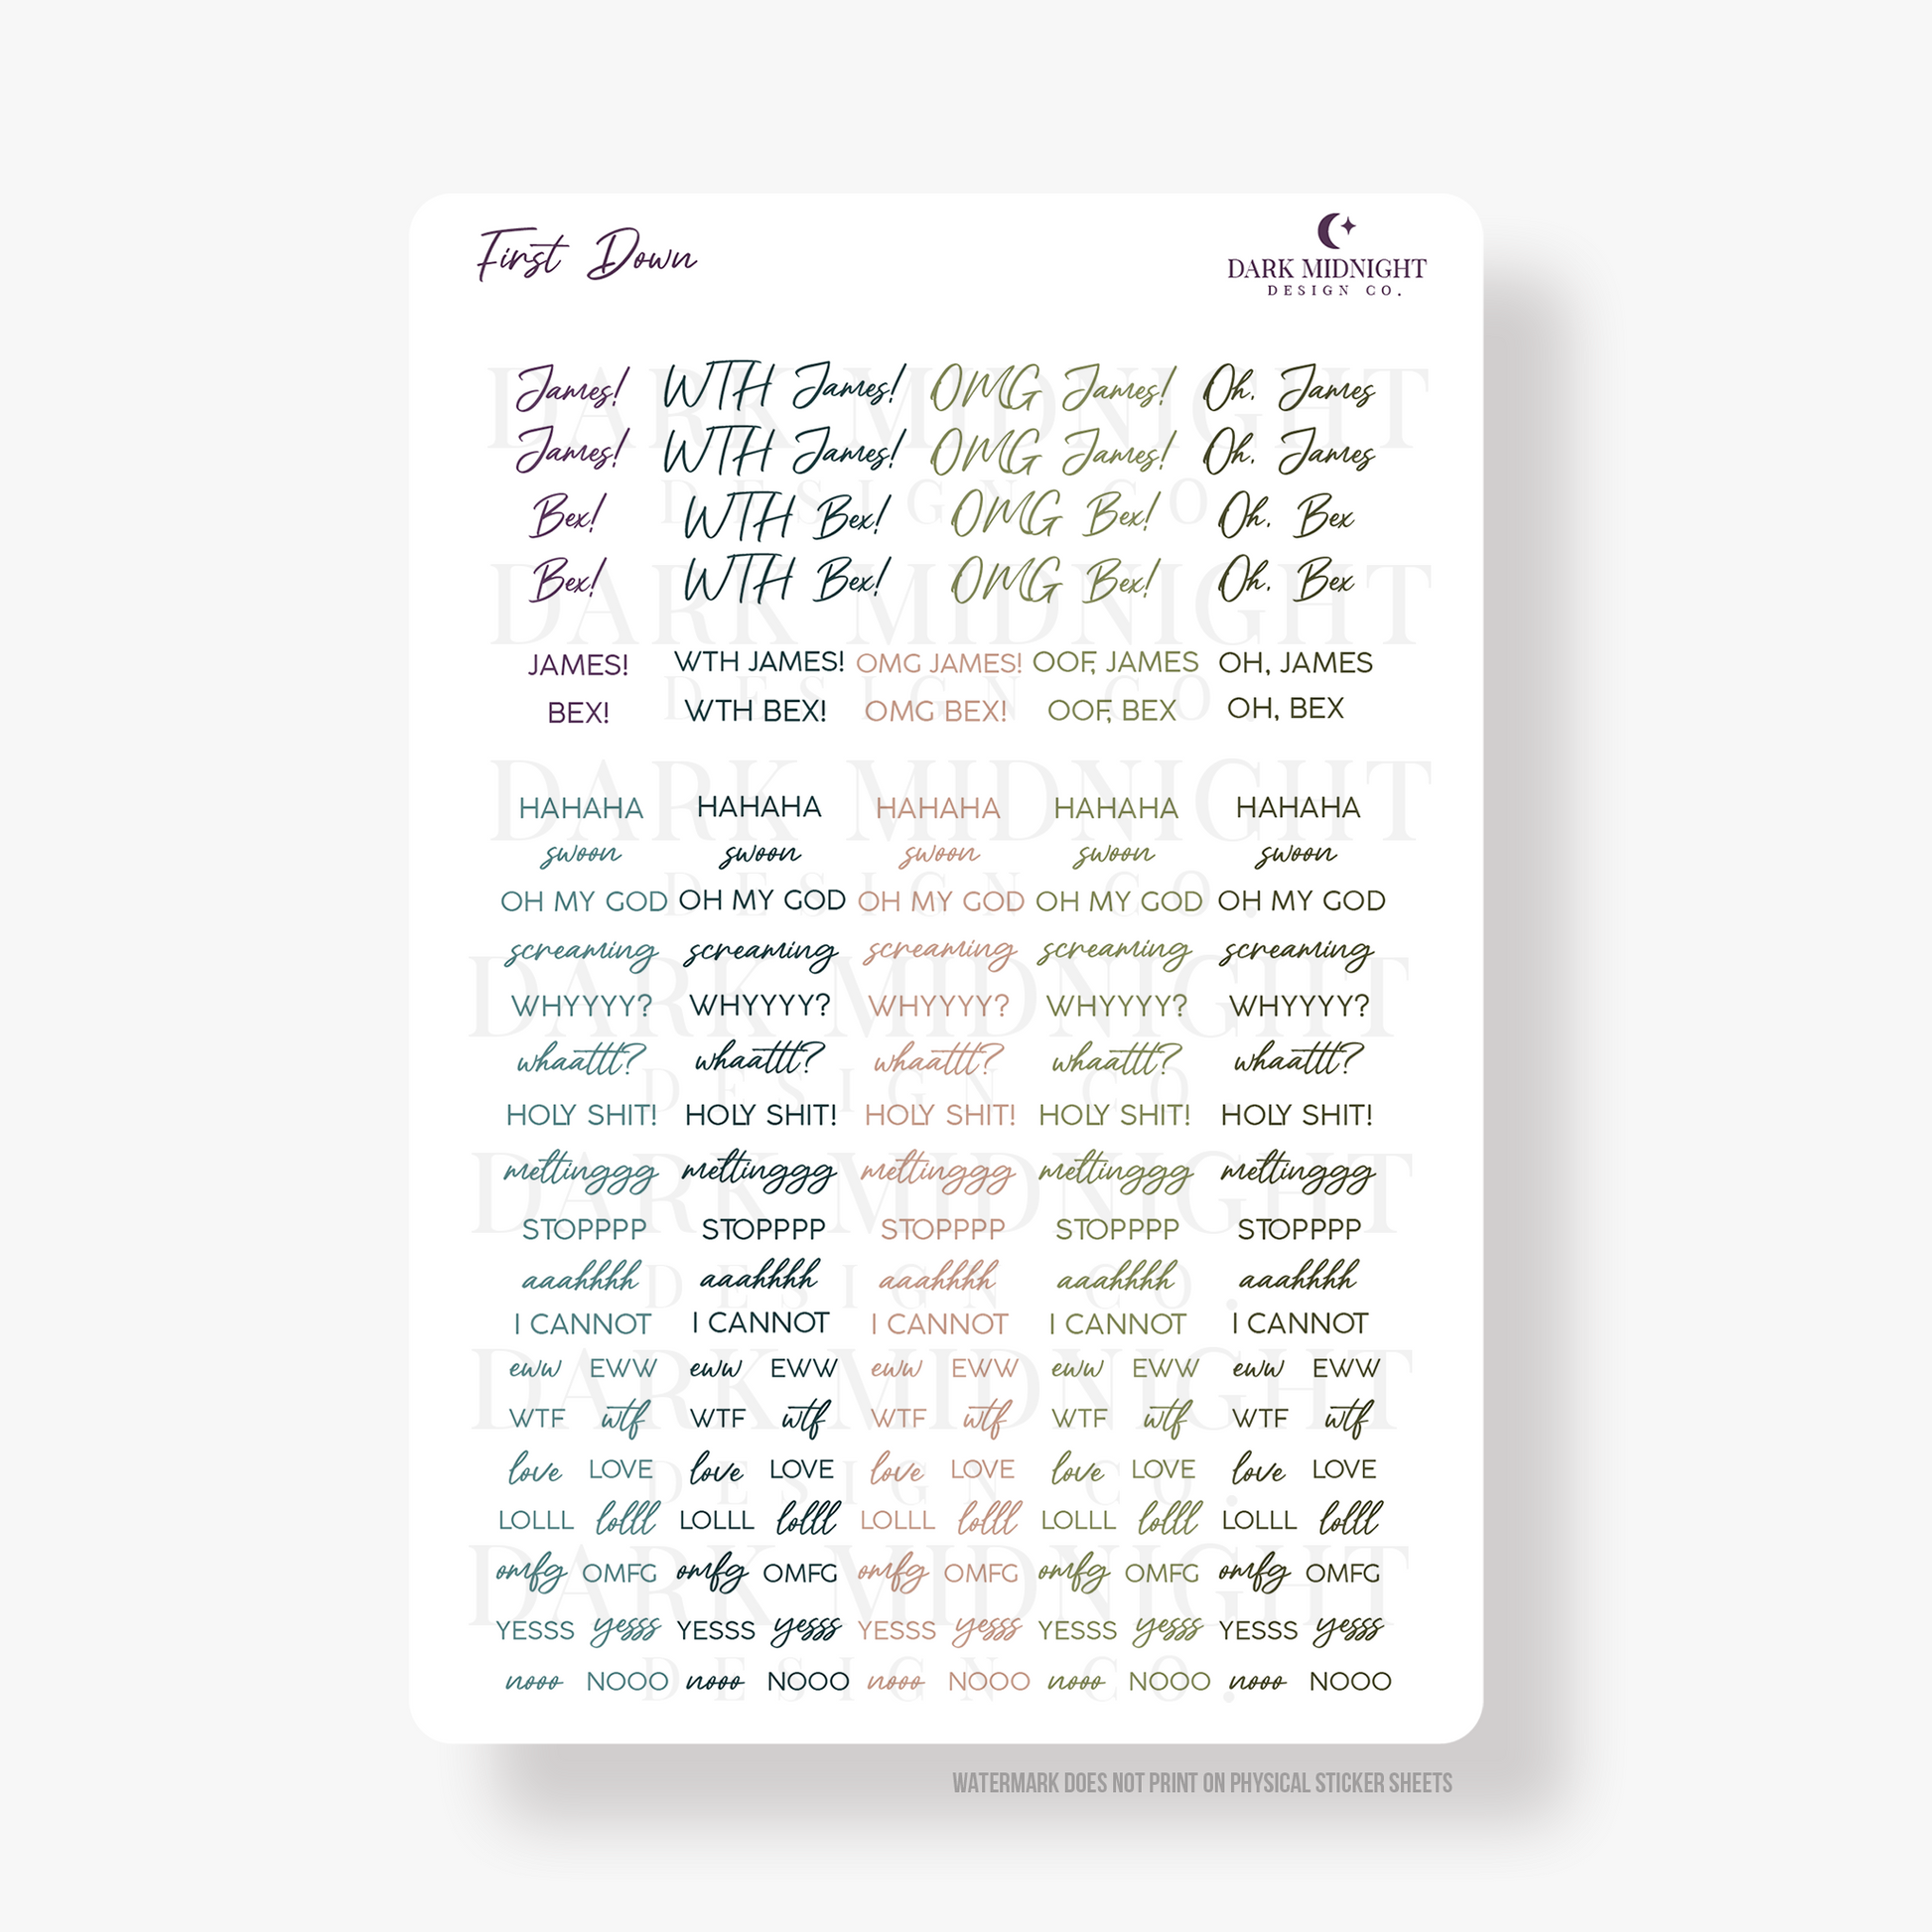 First Down
DARK MIDNIGHT
DESIGN CO.
James! WTH James! OMG James! Oh, James
James! WTH James! OMG James! Oh, James
Bex! WTH Bex! OMG Bex! Oh, Bex
Bex! WTH Bex! OMG Bex! Oh, Bex
JAMES! WTH JAMES! OMG JAMES! OOF, JAMES OH, JAMES
BEX! WTH BEX! OMG BEX! OOF, BEX OH, BEX
HAHAHA HAHAHA HAHAHA HAHAHA HAHAHA
swoon swoon swoon swoon swoon
OH MY GOD OH MY GOD OH MY GOD OH MY GOD OH MY GOD
screaming screaming screaming screaming screaming
WHYYYY? WHYYYY? WHYYYY? WHYYYY? WHYYYY?
whaattt? whaattt? whaattt? whaattt? whaattt?
HOLY SHIT! HOLY SHIT! HOLY SHIT! HOLY SHIT! HOLY SHIT!
meltinggg meltinggg meltinggg meltinggg meltinggg
STOPPPP STOPPPP STOPPPP STOPPPP STOPPPP
aaahhhh aaahhhh aaahhhh aaahhhh aaahhhh
I CANNOT I CANNOT I CANNOT I CANNOT I CANNOT
eww EWW eww EWW eww EWW eww EWW eww EWW
WTF wtf WTF wtf WTF wtf WTF wtf WTF wtf
love LOVE love LOVE love LOVE love LOVE love LOVE
LOLLL lolll LOLLL lolll LOLLL lolll LOLLL lolll LOLLL lolll
omfg OMFG omfg OMFG omfg OMFG omfg OMFG omfg OMFG
YESSS yesss YESSS yesss YESSS yesss YESSS yesss YESSS yesss
nooo NOOO nooo NOOO nooo NOOO nooo NOOO nooo NOOO
WATERMARK DOES NOT PRINT ON PHYSICAL STICKER SHEETS